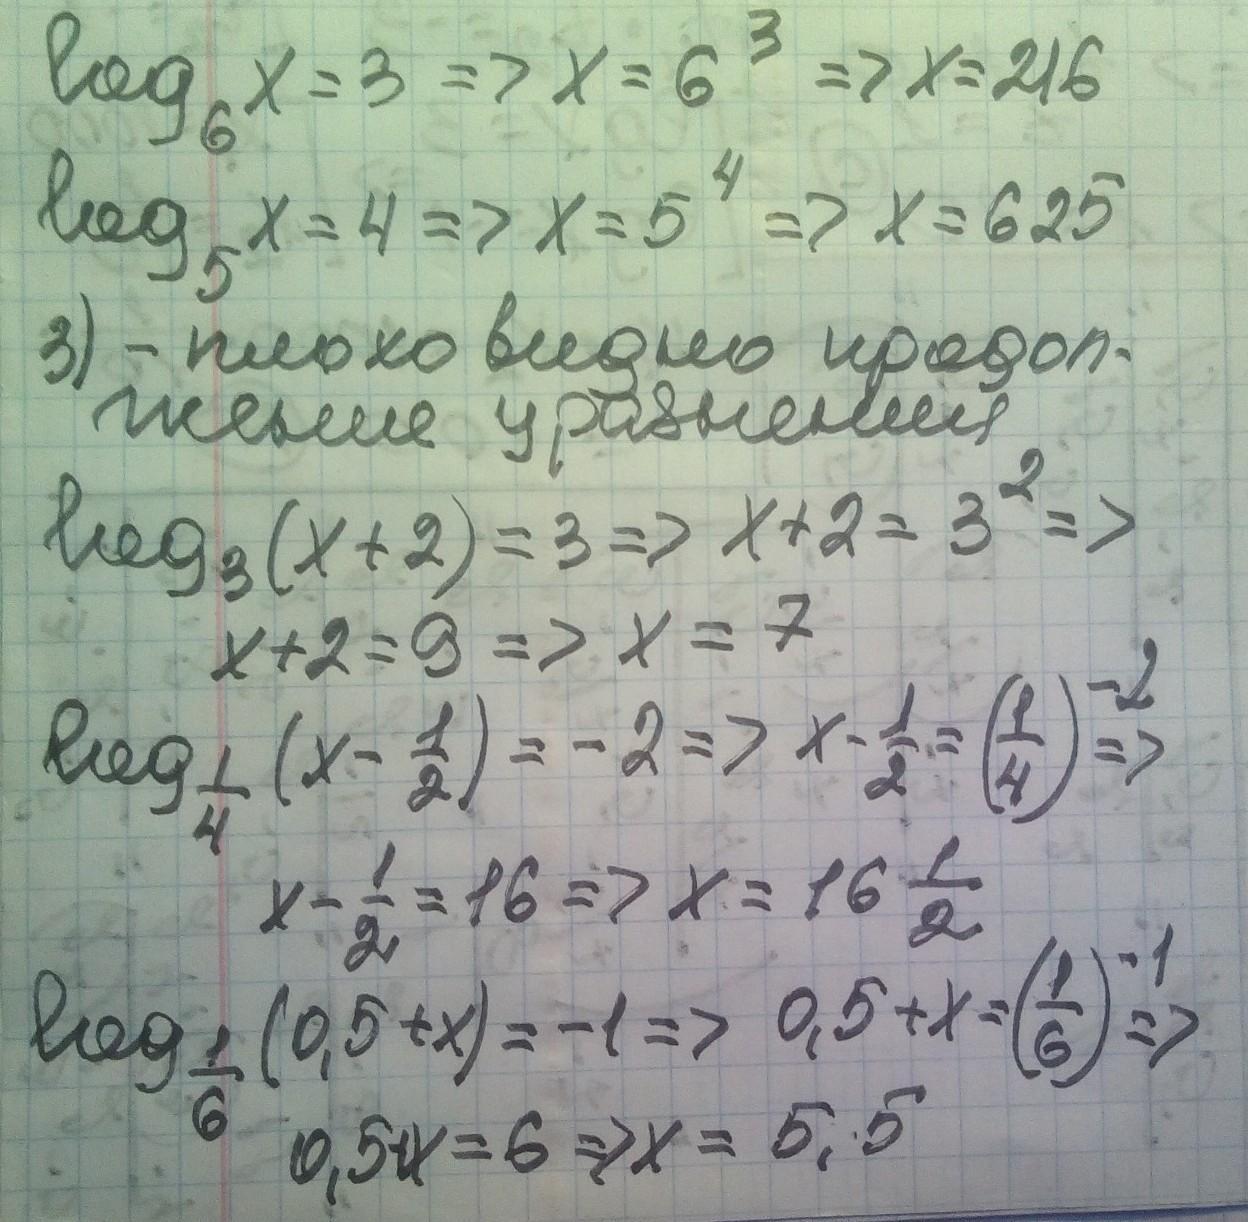 log₆ x = 3 => x = 6³ => x = 216
log₅ x = 4 => x = 5⁴ => x = 625
3) - плохо видно продол-
жение уравнения
log₃ (x + 2) = 3 => x + 2 = 3² =>
x + 2 = 9 => x = 7
log_{1/4} (x - 1/2) = -2 => x - 1/2 = (1/4)⁻² =>
x - 1/2 = 16 => x = 16 1/2
log_{1/6} (0,5 + x) = -1 => 0,5 + x = (1/6)⁻¹ =>
0,5 + x = 6 => x = 5,5